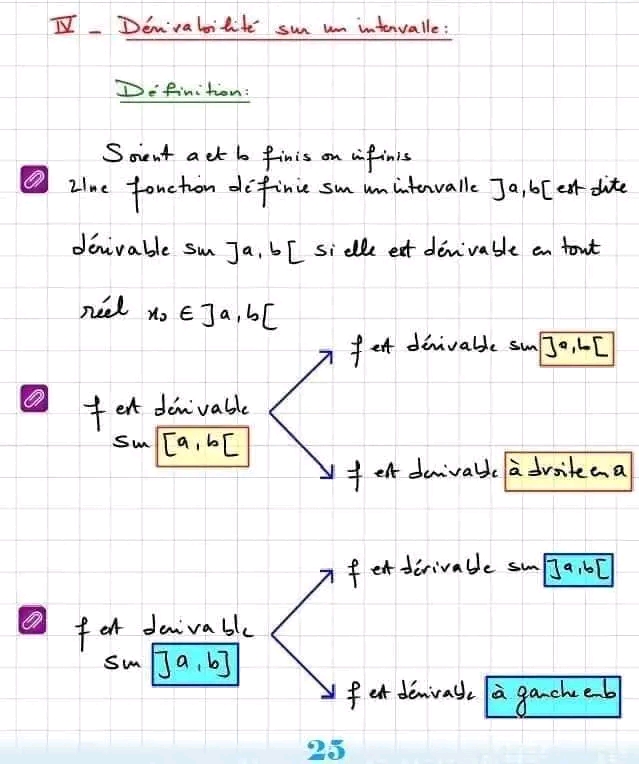 IV - Dérivabilité sur un intervalle:
Définition:
Soient a et b finis ou infinis
Une fonction définie sur un intervalle ]a,b[ est dite
dérivable sur ]a,b[ si elle est dérivable en tout
réel x₀ ∈ ]a,b[
f est dérivable sur ]a,b[
f est dérivable
sur [a,b[
f est derivable à droite en a
f est dérivable sur ]a,b[
f est derivable
sur ]a,b]
f est dérivable à gauche en b
25